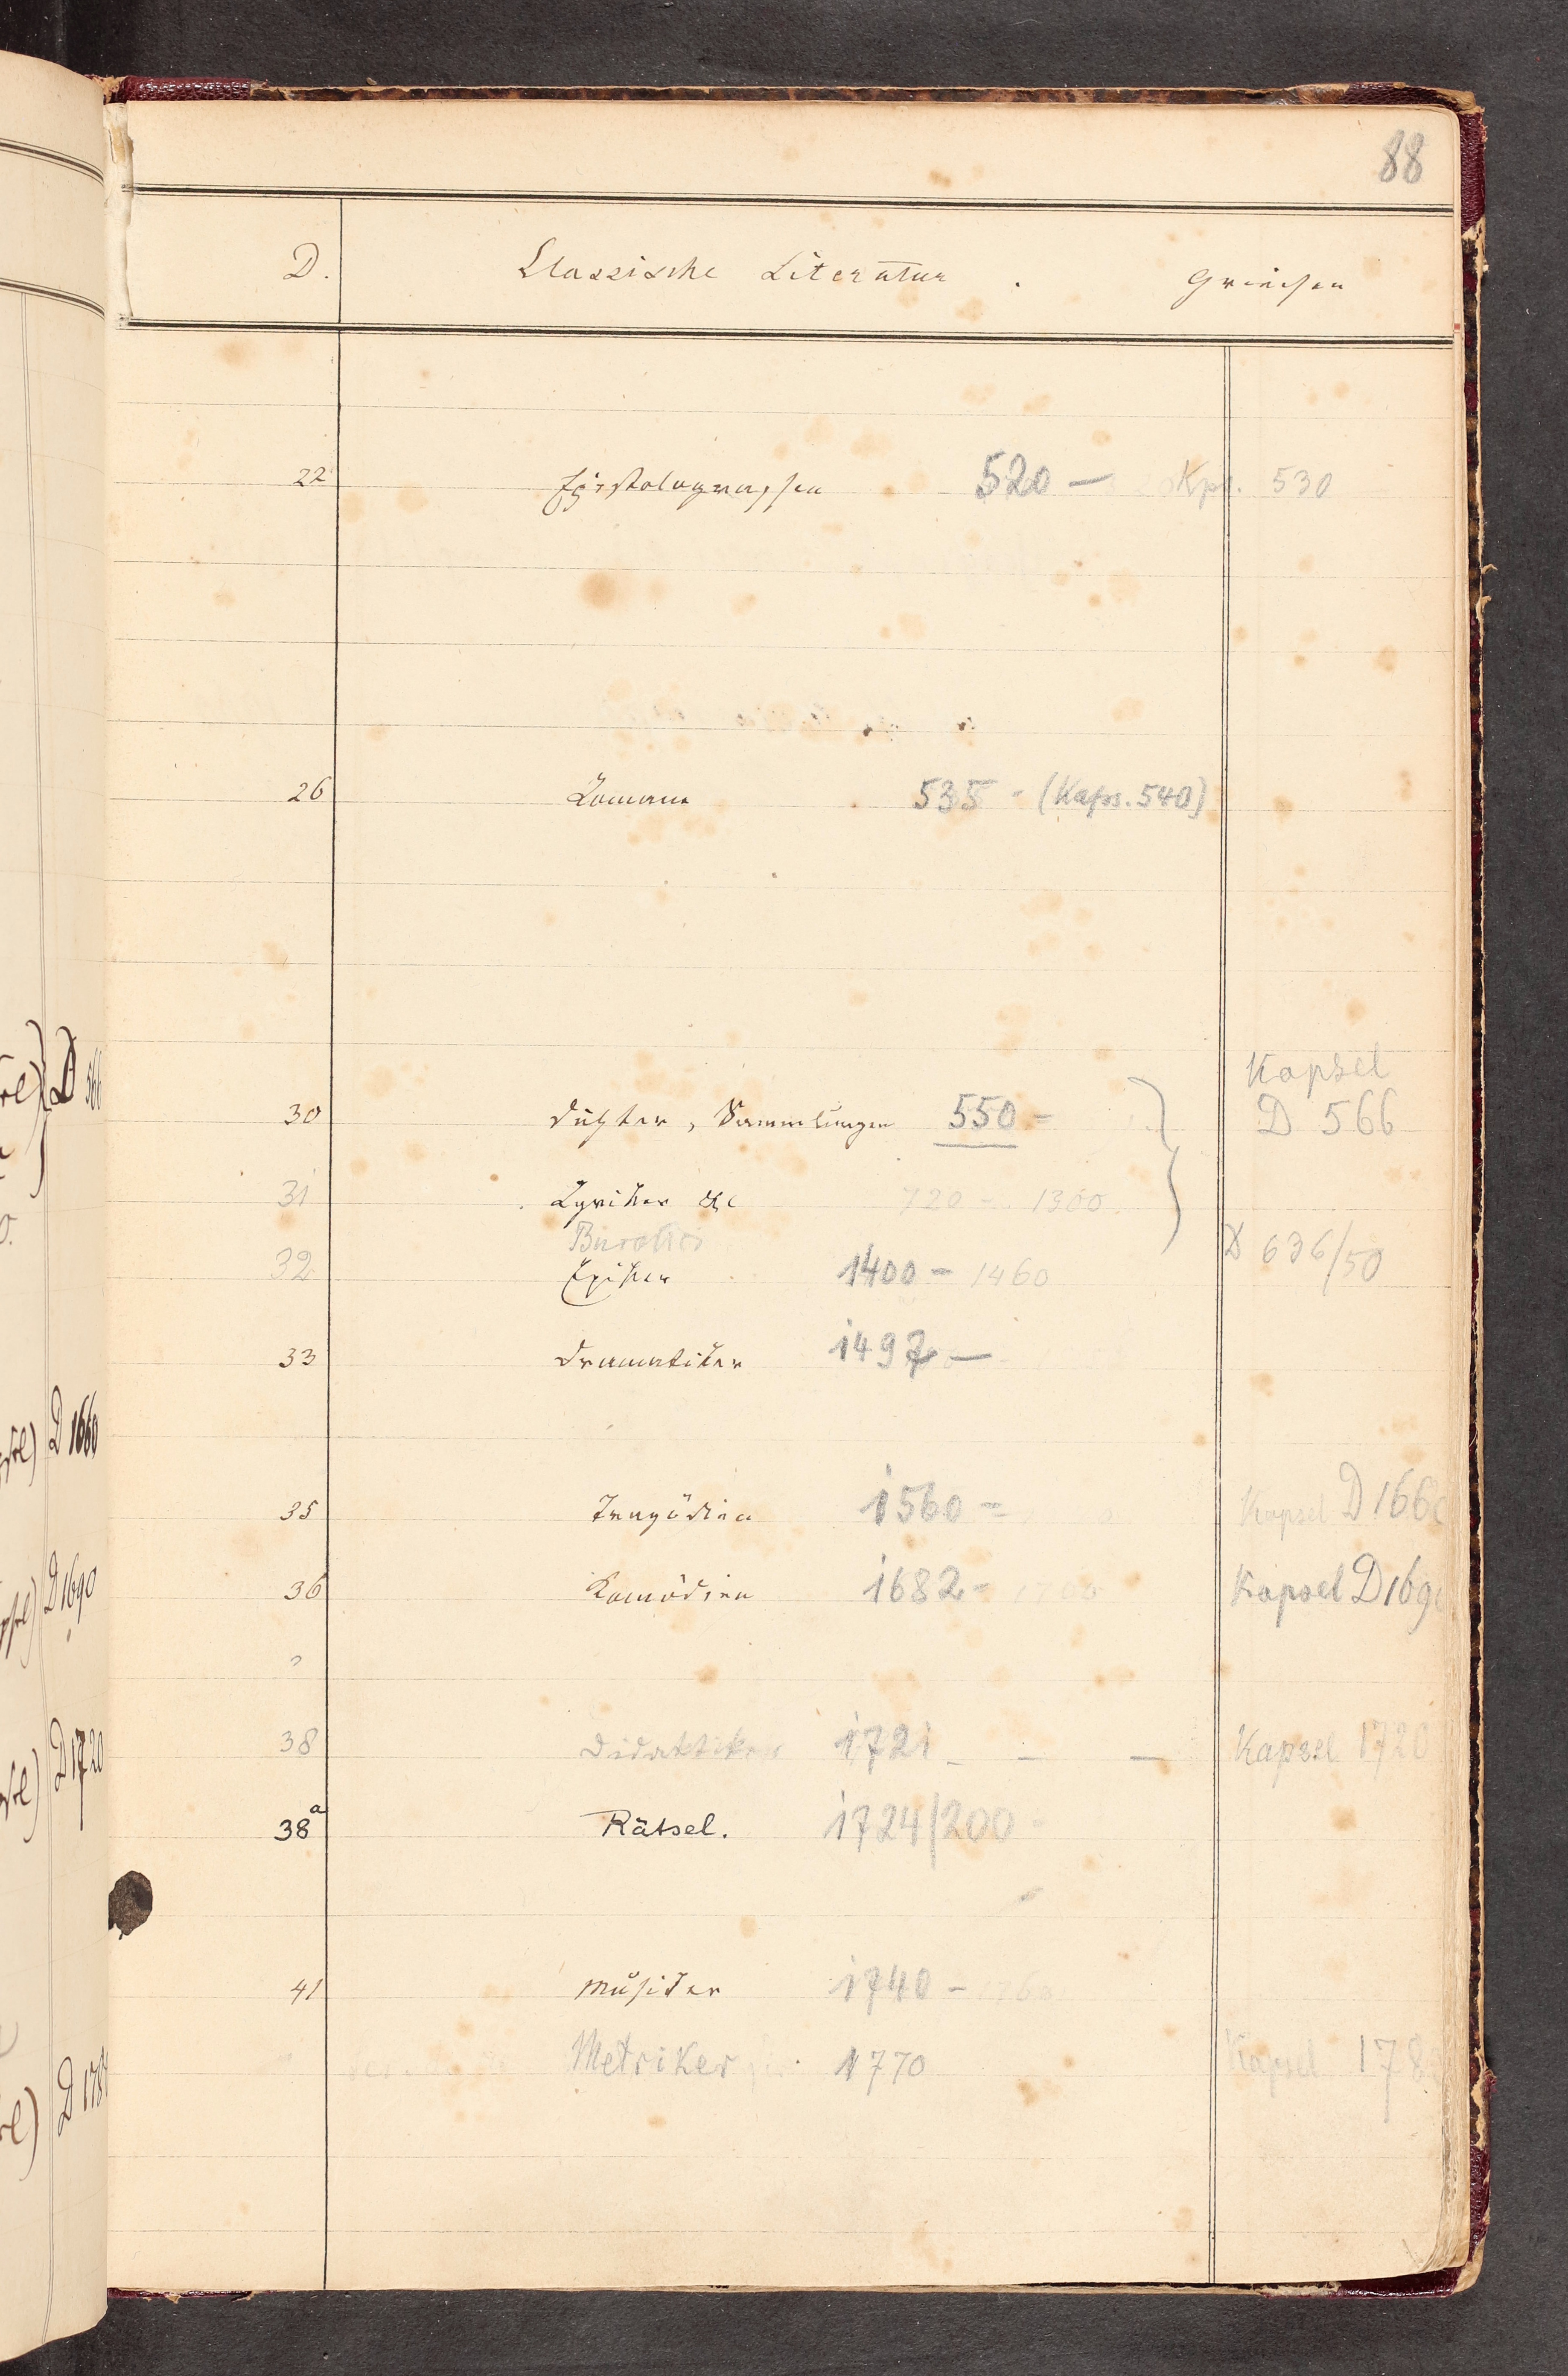 88
D. Classische Literatur . Griechen
22 Epistolographen 520 — Kps. 530
26 Romane 535 - (Kaps. 540)
Kapsel
30 Dichter, Sammlungen 550 - D 566
31 Lyriker &c 720 - 1300
Bucolici D 636/50
32 Epiker 1400 - 1460
33 Dramatiker 1497 —
35 Tragödien 1560 - Kapsel D 1660
36 Komödien 1682 - Kapsel D 1690
38 Didaktiker 1721 - - — Kapsel 1720
38a Rätsel. 1724/200
41 Musiker 1740 -
Metriker 1770 Kapsel
D 566
D 1660
D 1690
D 1720